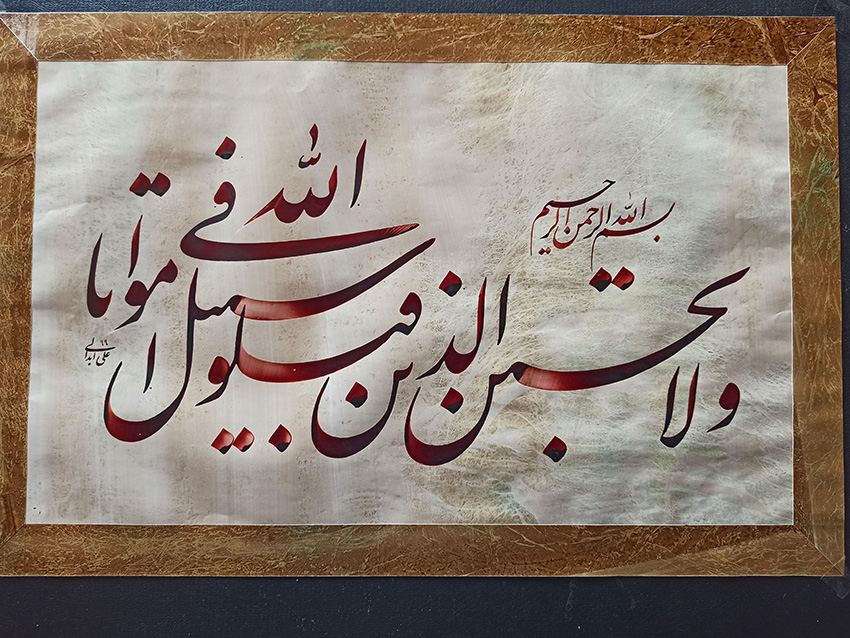 بسم الله الرحمن الرحیم
ولا تحسبن الذین قتلو فی سبیل الله امواتا
علی ابدالی